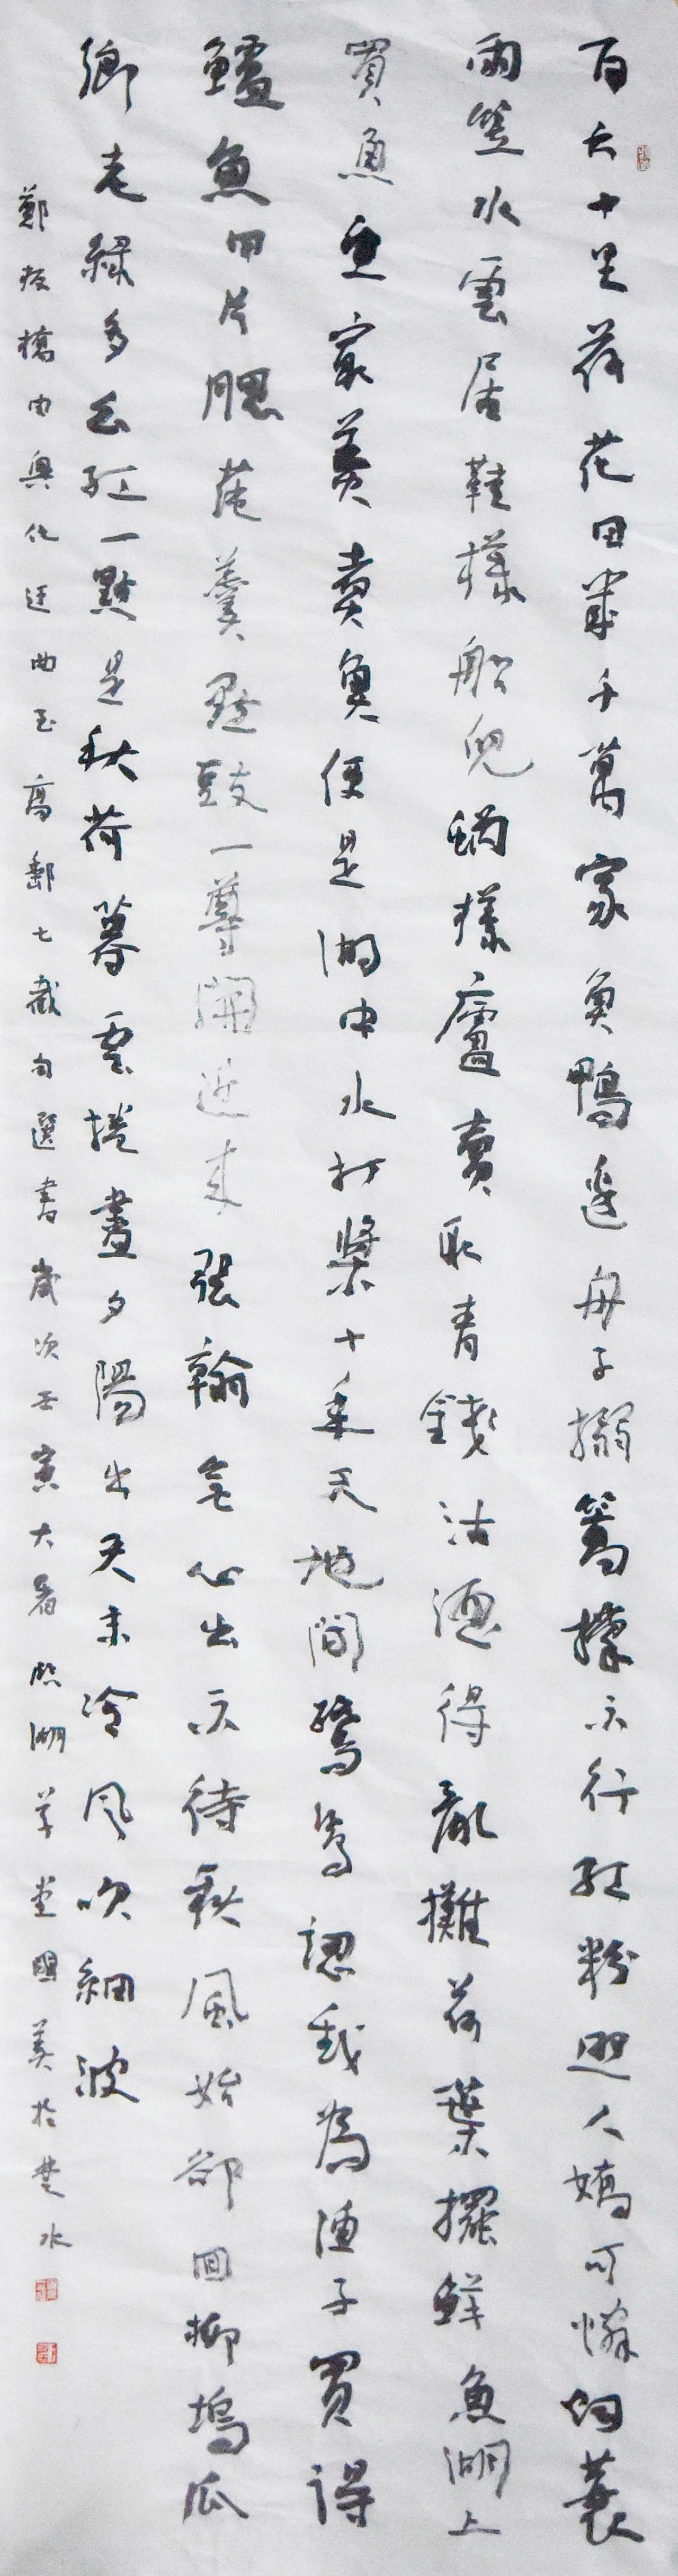 百六十里荷花田幾千萬家魚鴨邊舟子搦篙撑不行紅粉照人嬌可憐烟蓑
雨笠水雲居鞋樣船兒蝸樣廬賣取青錢沽酒得亂攤荷葉擺鮮魚湖上
買魚魚最美煮魚便是湖中水打槳十年天地間鷺鷥認我為漁子買得
鱸魚四片腮蒓羹點豉一尊開近來張翰無心出不待秋風始却回柳塢瓜
鄉老綠多幺紅一點是秋荷暮雲捲盡夕陽出天末冷風吹細波
鄭板橋由興化迂曲至高郵七截句選書歲次壬寅大暑照湖草堂國美於楚水